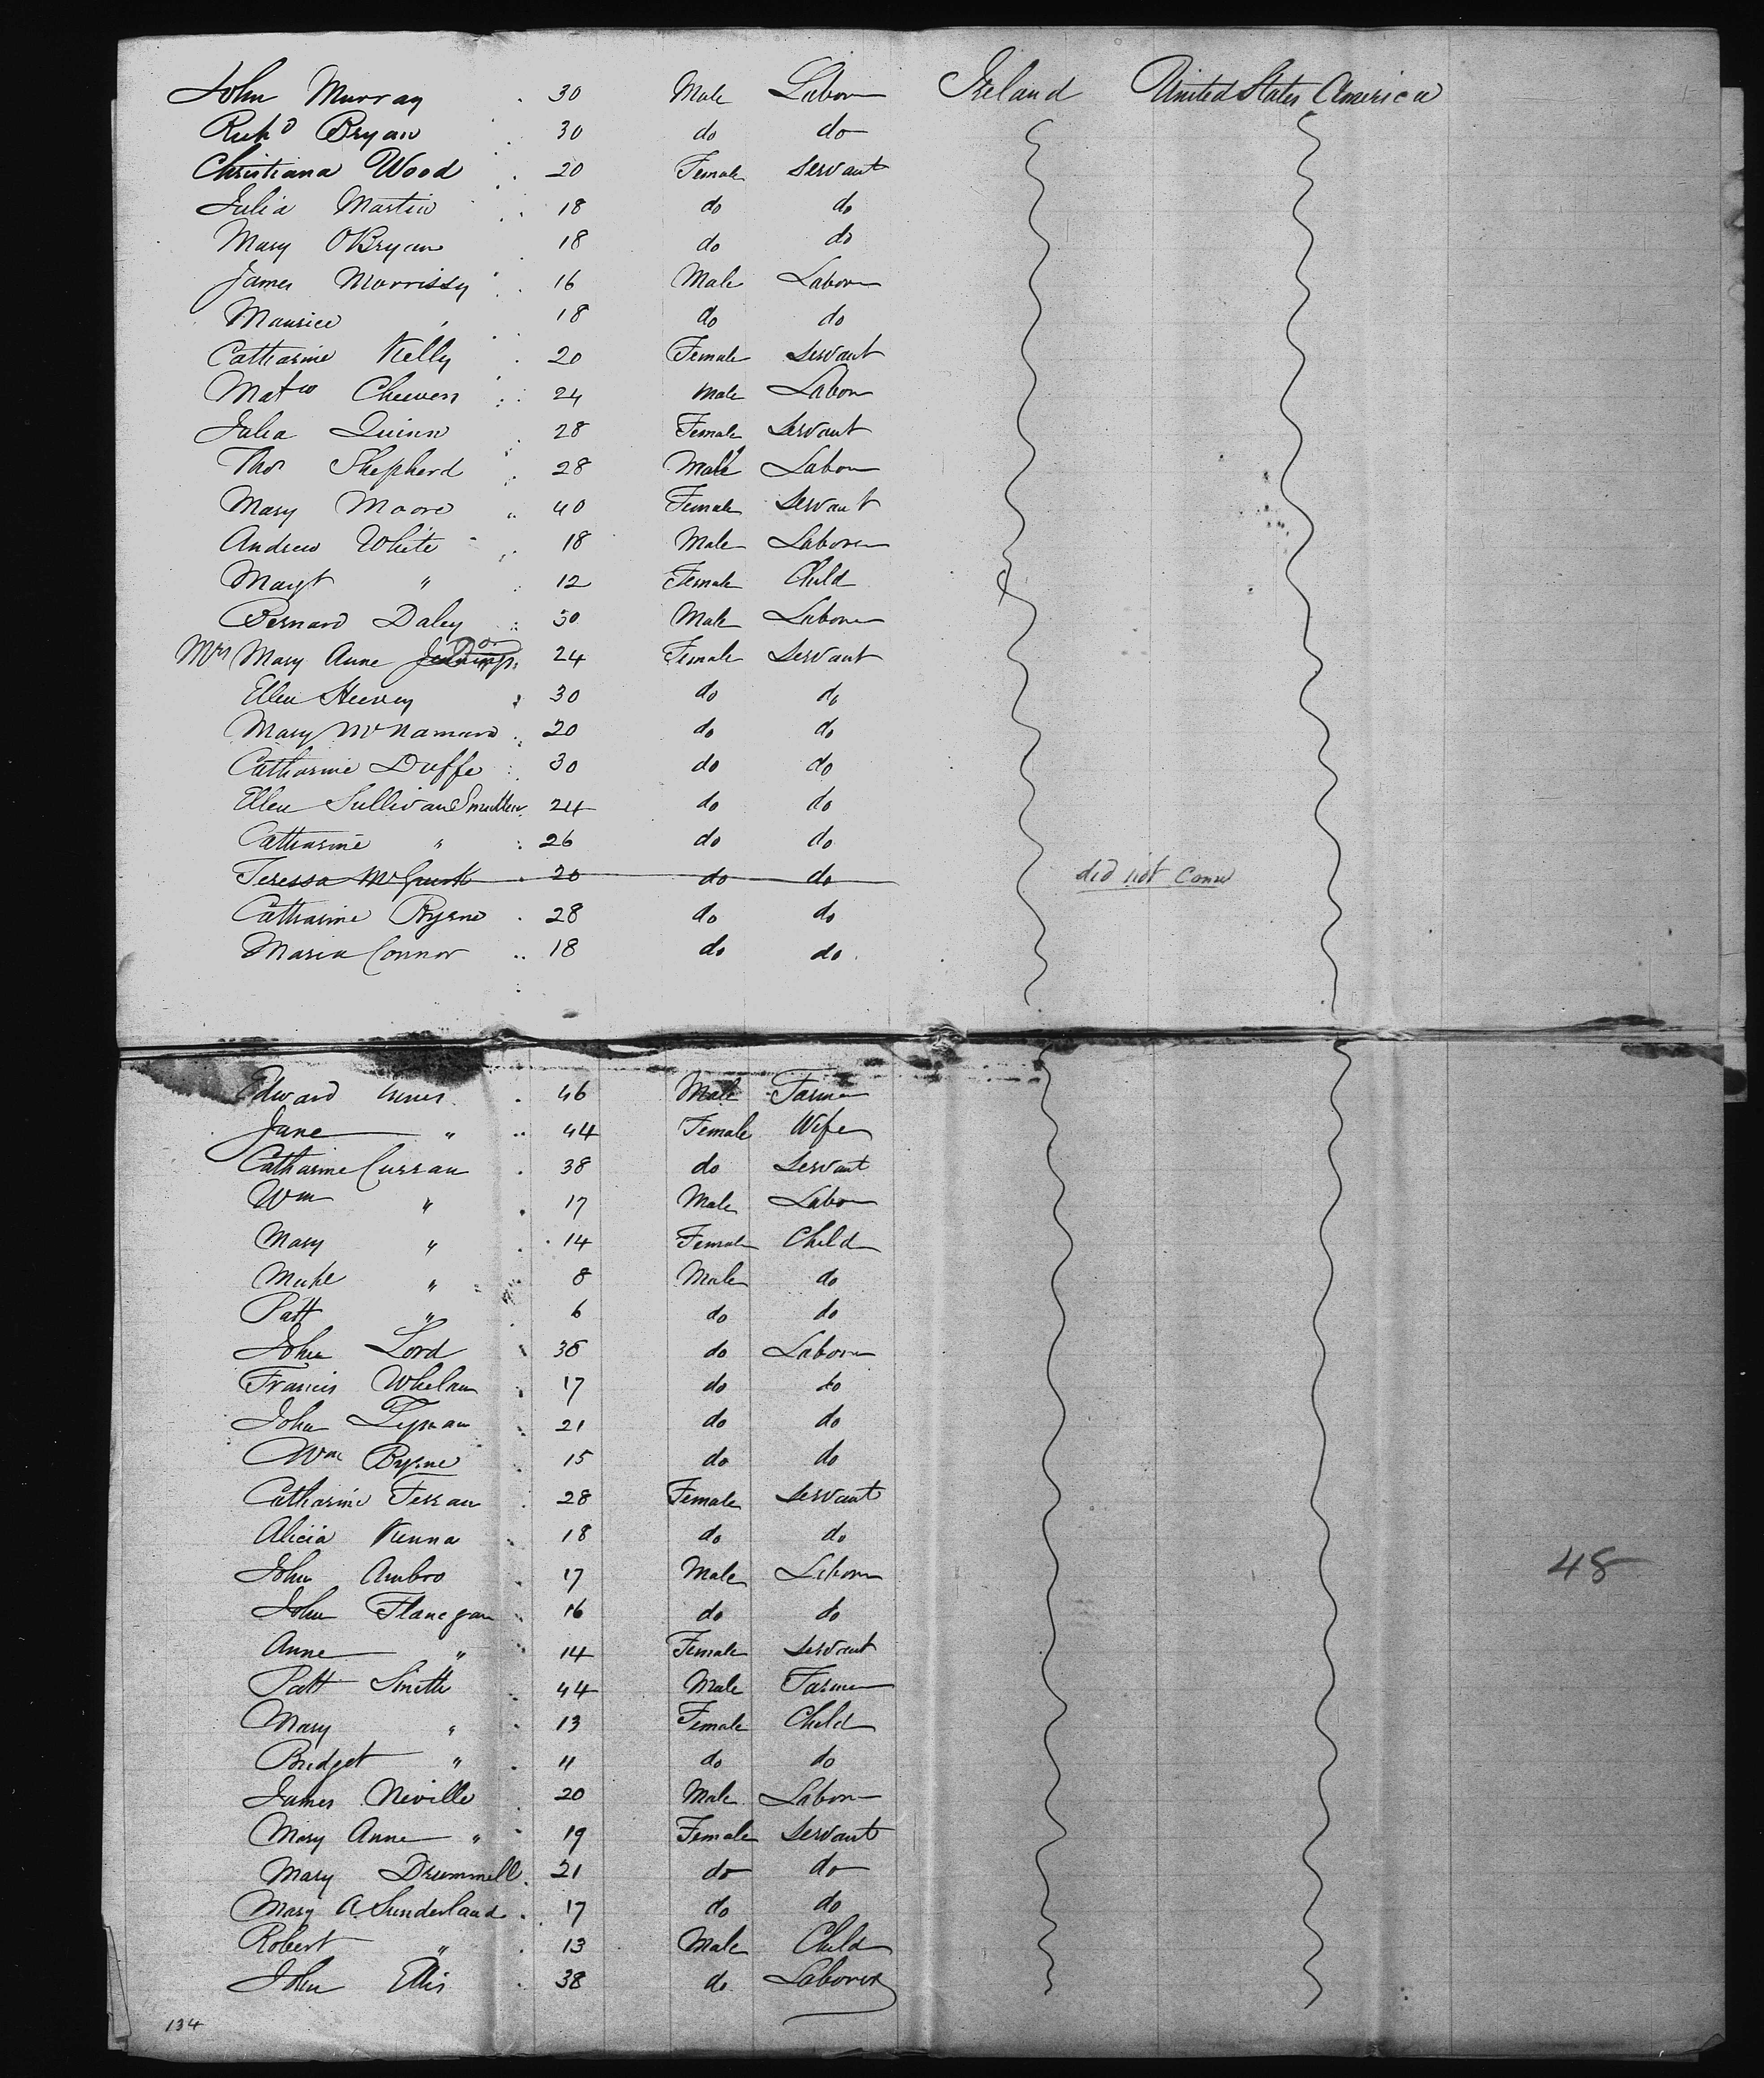 John Murray 30 Male Labor Ireland United States America
Richd Bryan 30 do do
Christiana Wood 20 Female Servant
Julia Martin 18 do do
Mary OBryan 18 do do
James Morrissy 16 Male Labor
Maurice " 18 do do
Catharine Kelly 20 Female Servant
Matw 24 Male Labor
Julia Quinn 28 Female Servant
Thos Shepherd 28 Male Labor
Mary Moore 40 Female Servant
Andrew White 18 Male Laborer
Margt " 12 Female Child
Bernard Daley 30 Male Laborer
Mrs Mary Anne 24 Female Servant
Ellen 30 do do
Mary McNamara 20 do do
Catharine Duffe 30 do do
Ellen Sullivan 24 do do
Catharine " 26 do do
Teressa McGurk 20 do do did not come
Catharine Byrne 28 do do
Maria Connor 18 do do
Edward 46 Male Farmer
Jane " 44 Female Wife
Catharine Curran 38 do Servant
Wm " 17 Male Labor
Mary " 14 Female Child
Michl " 8 Male do
Patt " 6 do do
John Lord 36 do Laborer
Francis Whelan 17 do do
John 21 do do
Wm Byrne 15 do do
Catharine Ferran 28 Female Servant
Alicia Kenna 18 do do
John Ambro 17 Male Laborer
John Flanegan 16 do do
Anne " 14 Female Servant
Patt Smith 44 Male Farmer
Mary " 13 Female Child
Bridget " 11 do do
James Neville 20 Male Labor
Mary Anne " 19 Female Servant
Mary Drummell 21 do do
Mary A Sunderland 17 do do
Robert " 13 Male Child
John Ellis 38 do Laborer
48
134